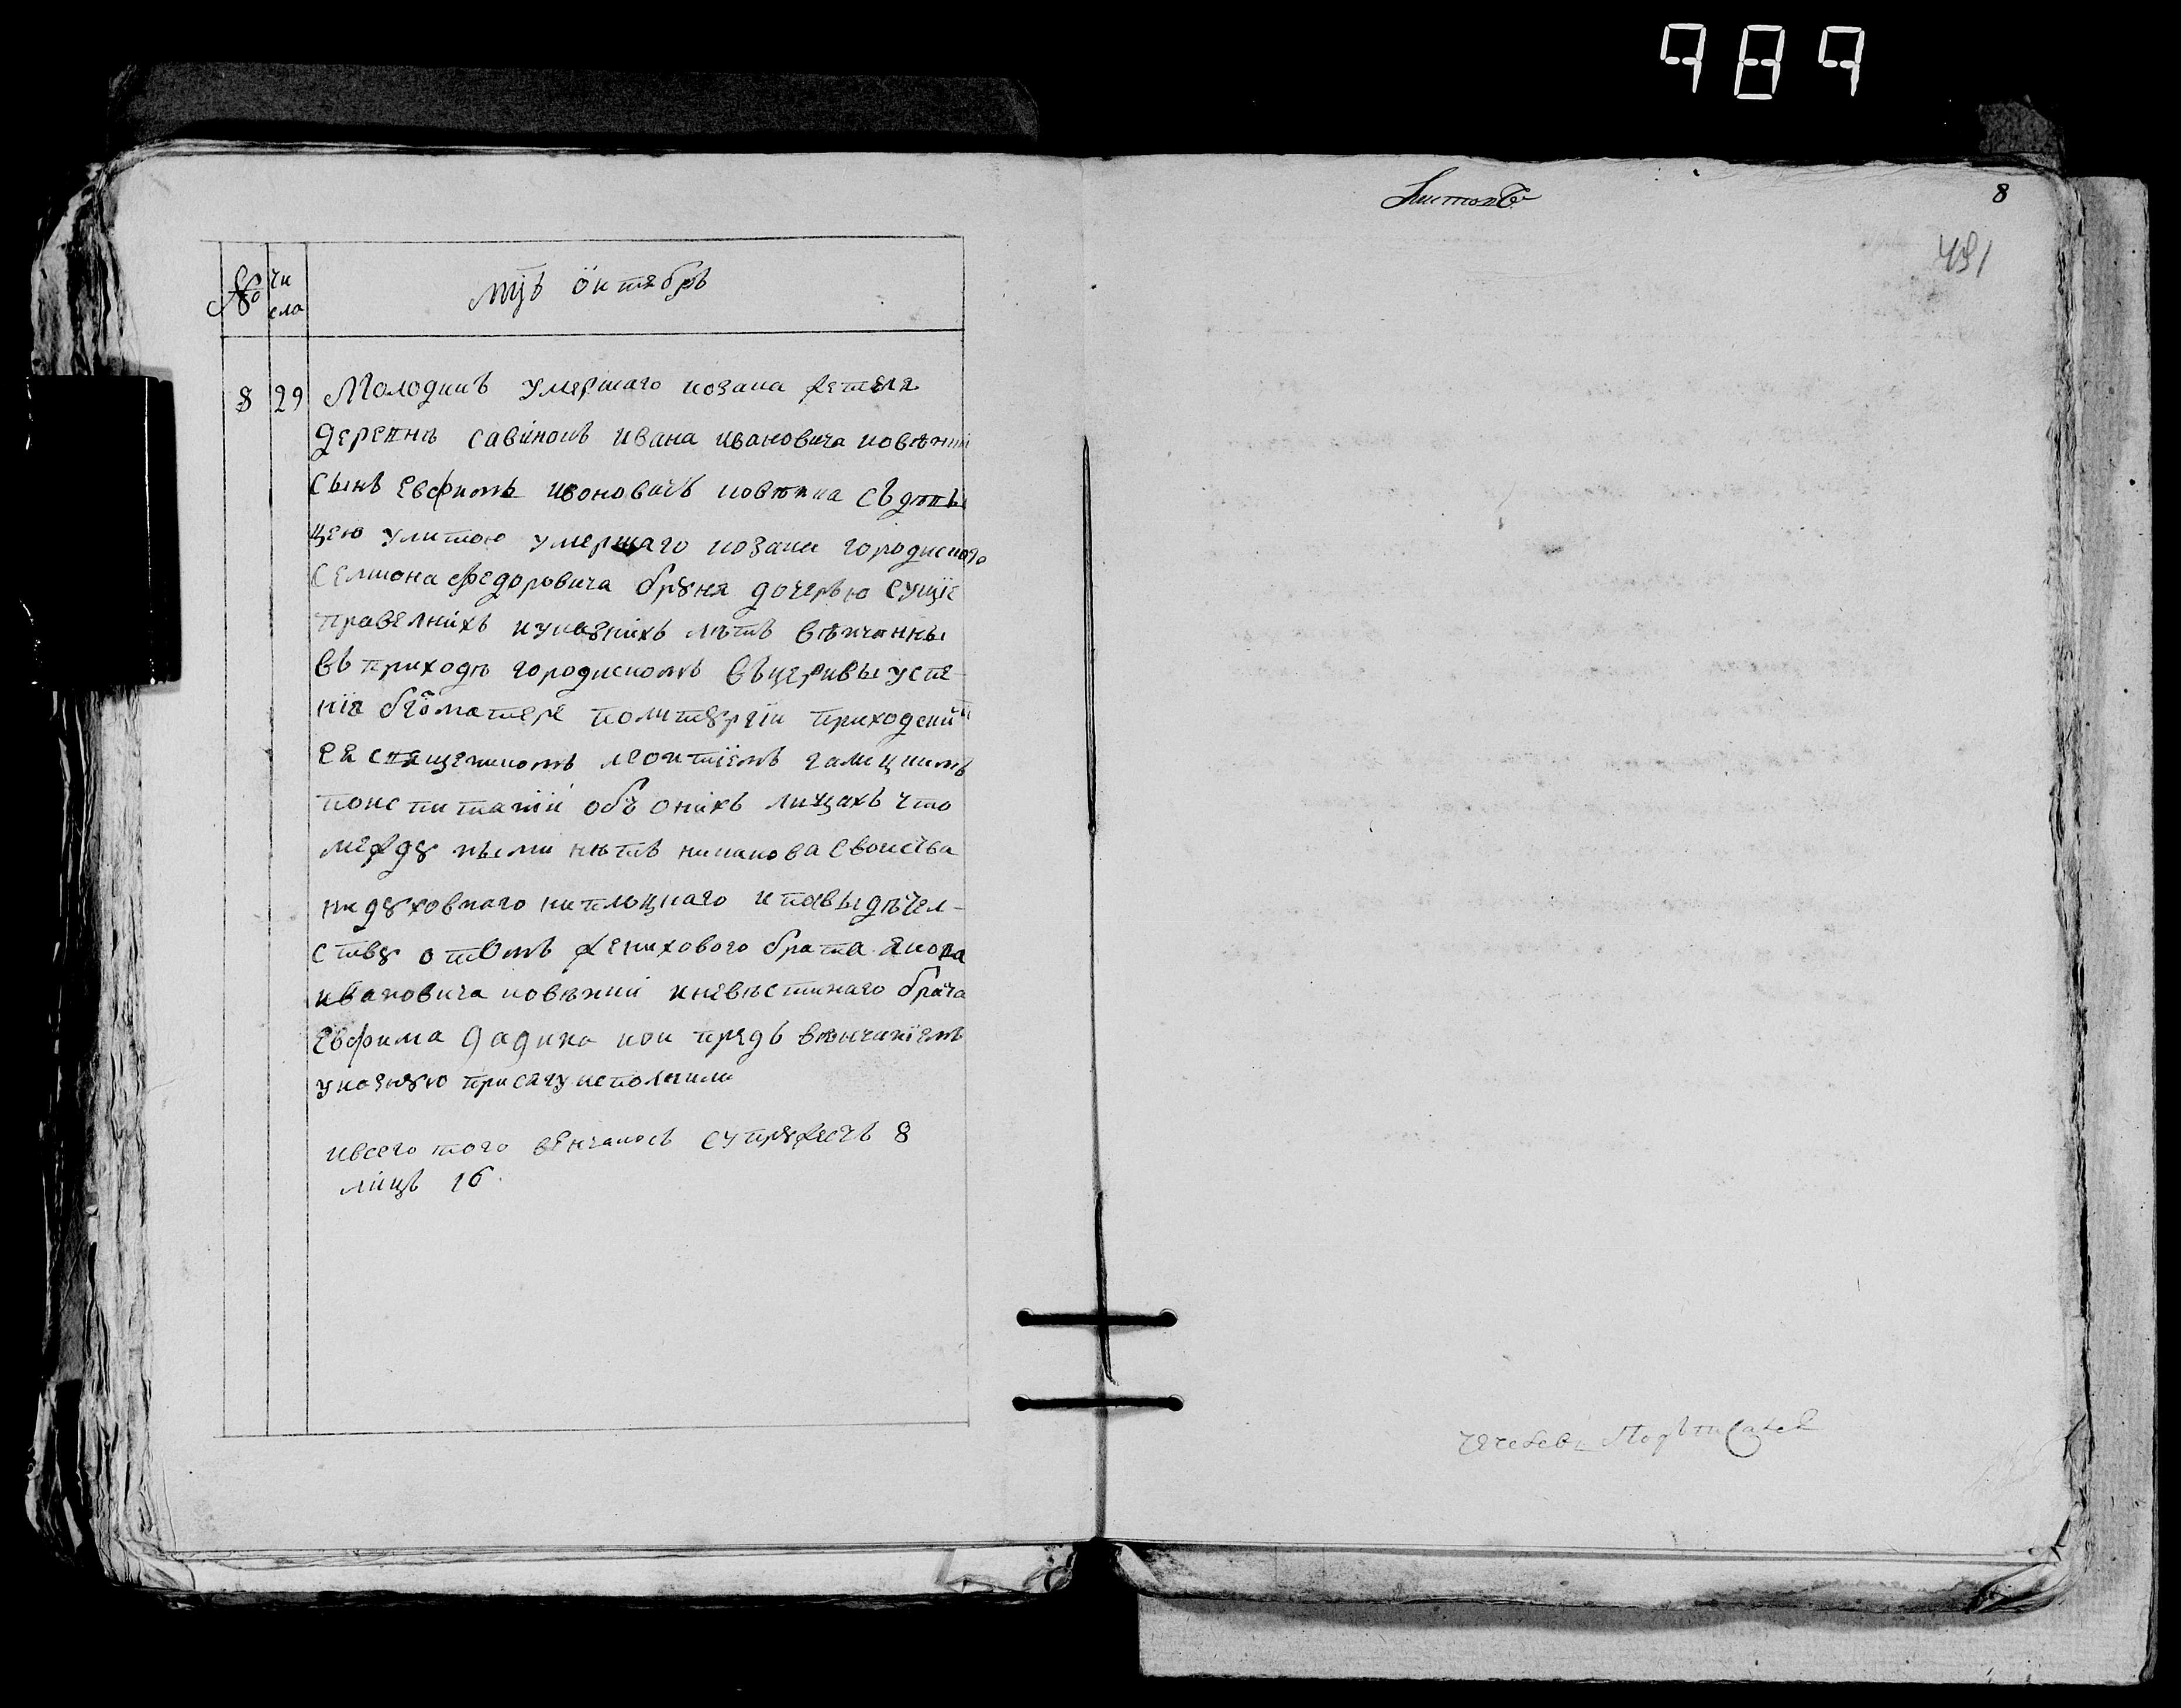 989
№ чи
сла
мцъ октябръ
8 29 Молодикъ умершаго козака жителя
деревнѣ савинокъ ивана ивановича ковѣжки
сынъ Евфимъ ивановичъ ковѣжка съ дѣвы
цею улитою умершаго козака городиского
Семиона Федоровича дочерью сущіе
правелнихъ иуказнихъ лѣтъ вѣнчанны
въ приходѣ городискомъ въ церквы успе
нія бгоматере политꙋргіи приходским
ея священикомъ леонтіемъ галицкимъ
поиспитаніи объ онихъ лицахъ что
междꙋ ными нѣтъ никакова свойства
ни дꙋховнаго ни плоцкаго и посвыдѣтел-
ствꙋ о томъ женихового брата якова
ивановича ковѣжки и невѣстинаго брата
Евфима дадика кои предъ вѣнчаніемъ
указнꙋю присягу исполнили
ивсего того венчалось супрꙋжествъ 8
лицъ 16
Листовъ
8
491